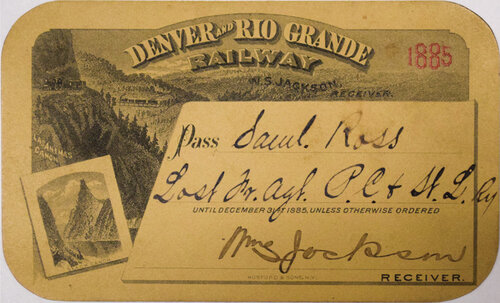 DENVER AND RIO GRANDE
RAILWAY
1885
W. S. JACKSON,
RECEIVER.
Pass Saml. Ross
Lost Fr. Agt. P. C. & St. L. Ry
UNTIL DECEMBER 31ST 1885, UNLESS OTHERWISE ORDERED
Wm S Jackson
RECEIVER.
HOSFORD & SONS, N.Y.